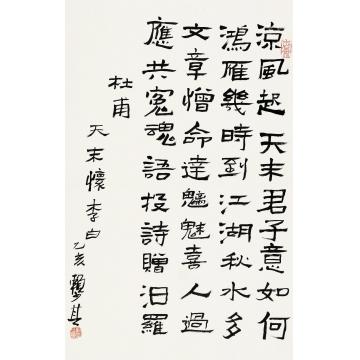 涼風起天末君子意如何
鴻雁幾時到江湖秋水多
文章憎命達魑魅喜人過
應共冤魂語投詩贈汨羅
杜甫
天末懷李白 乙亥